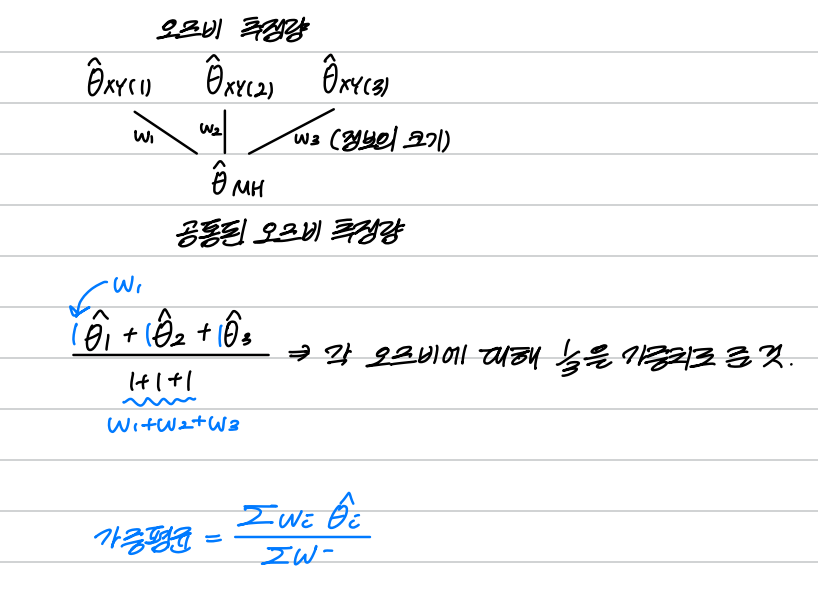 오즈비 추정량
θ̂XY(1) θ̂XY(2) θ̂XY(3)
w₁ w₂ w₃ (정보의 크기)
θ̂MH
공통된 오즈비 추정량
w₁
1θ̂₁ + 1θ̂₂ + 1θ̂₃
1+1+1
⇒ 각 오즈비에 대해 ⅓을 가중치로 준 것.
w₁+w₂+w₃
가중평균 = Σwᵢ θ̂ᵢ
Σw-